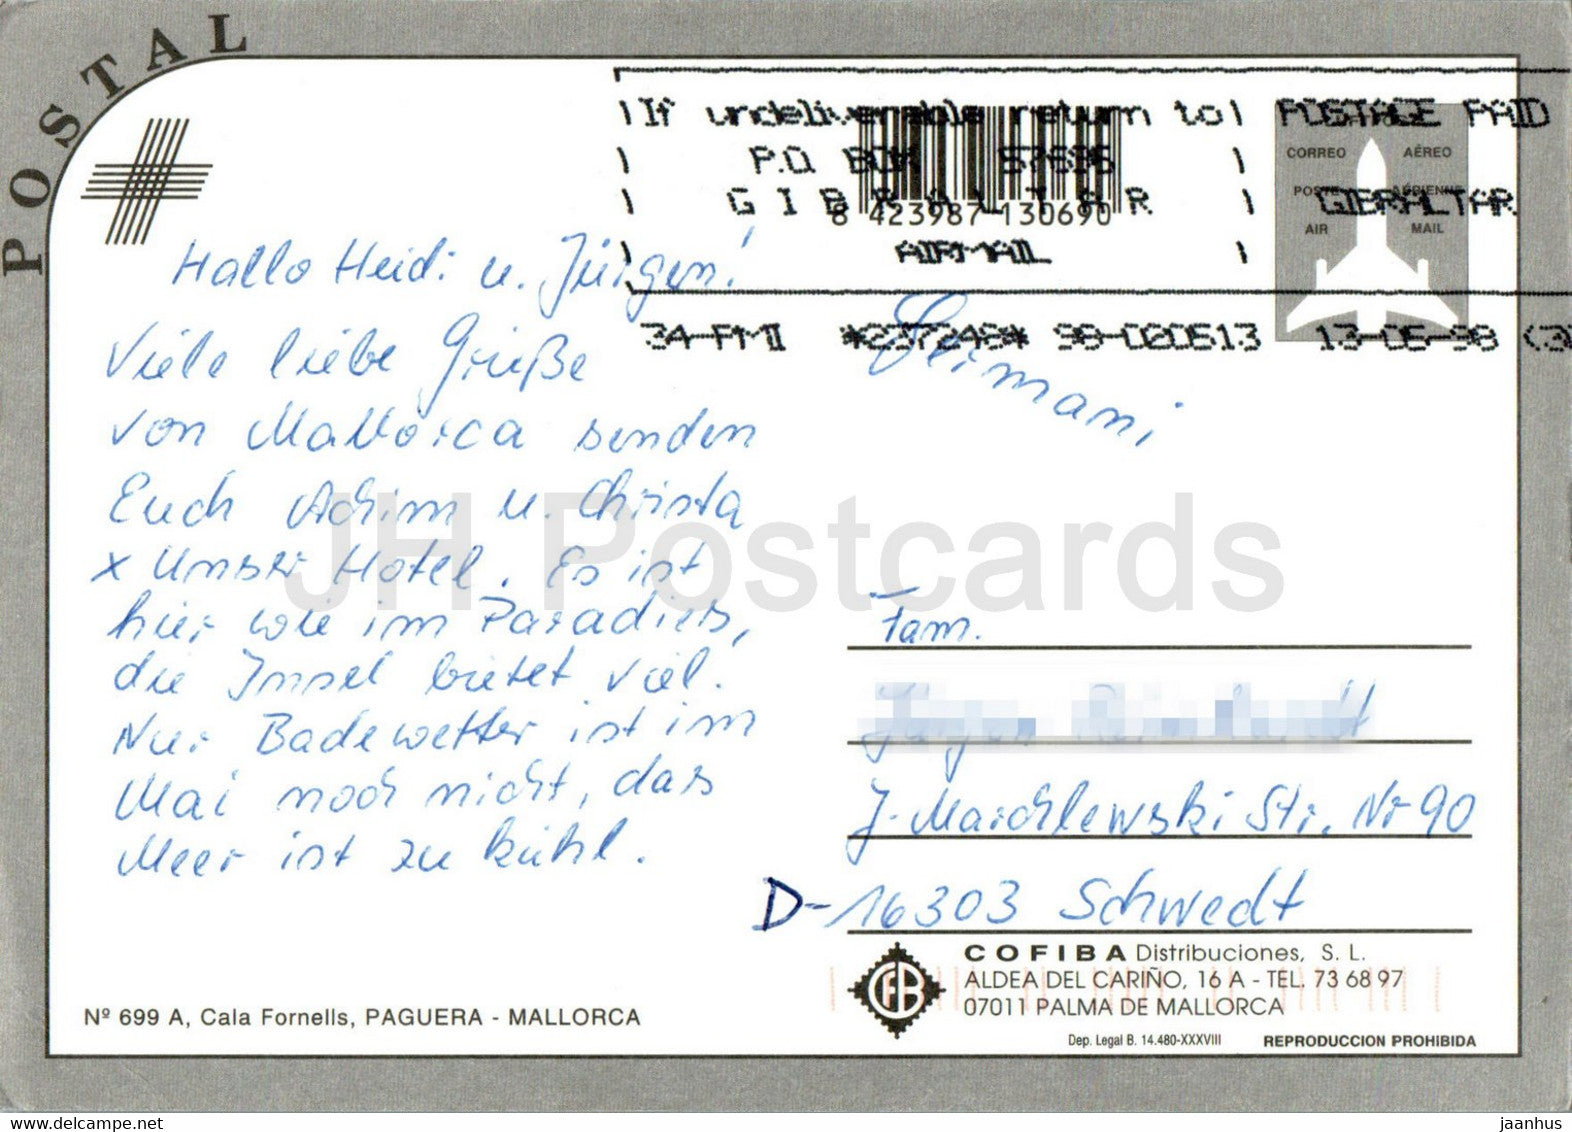 POSTAL
If undeliverable return to
POSTAGE PAID
P.O. BOX 57635
GIBRALTAR
GIBRALTAR
AIRMAIL
CORREO AÉREO
POSTE AÉRIENNE
AIR MAIL
8 423987 130690
34-PMI *237248* 98-020513 13-05-98 (3)
Hallo Heidi u. Jürgen!
Viele liebe Grüße
von Mallorca senden
Euch Achim u. Christa
x Unser Hotel. Es ist
hier wie im Paradies,
die Insel bietet viel.
Nur Badewetter ist im
Mai noch nicht, das
Meer ist zu kühl.
Fam.
J.-Marchlewski Str. Nr 90
D-16303 Schwedt
COFIBA Distribuciones, S. L.
ALDEA DEL CARIÑO, 16 A - TEL. 73 68 97
07011 PALMA DE MALLORCA
Dep. Legal B. 14.480-XXXVIII
REPRODUCCION PROHIBIDA
Nº 699 A, Cala Fornells, PAGUERA - MALLORCA
JH Postcards
www.delcampe.net
jaanhus